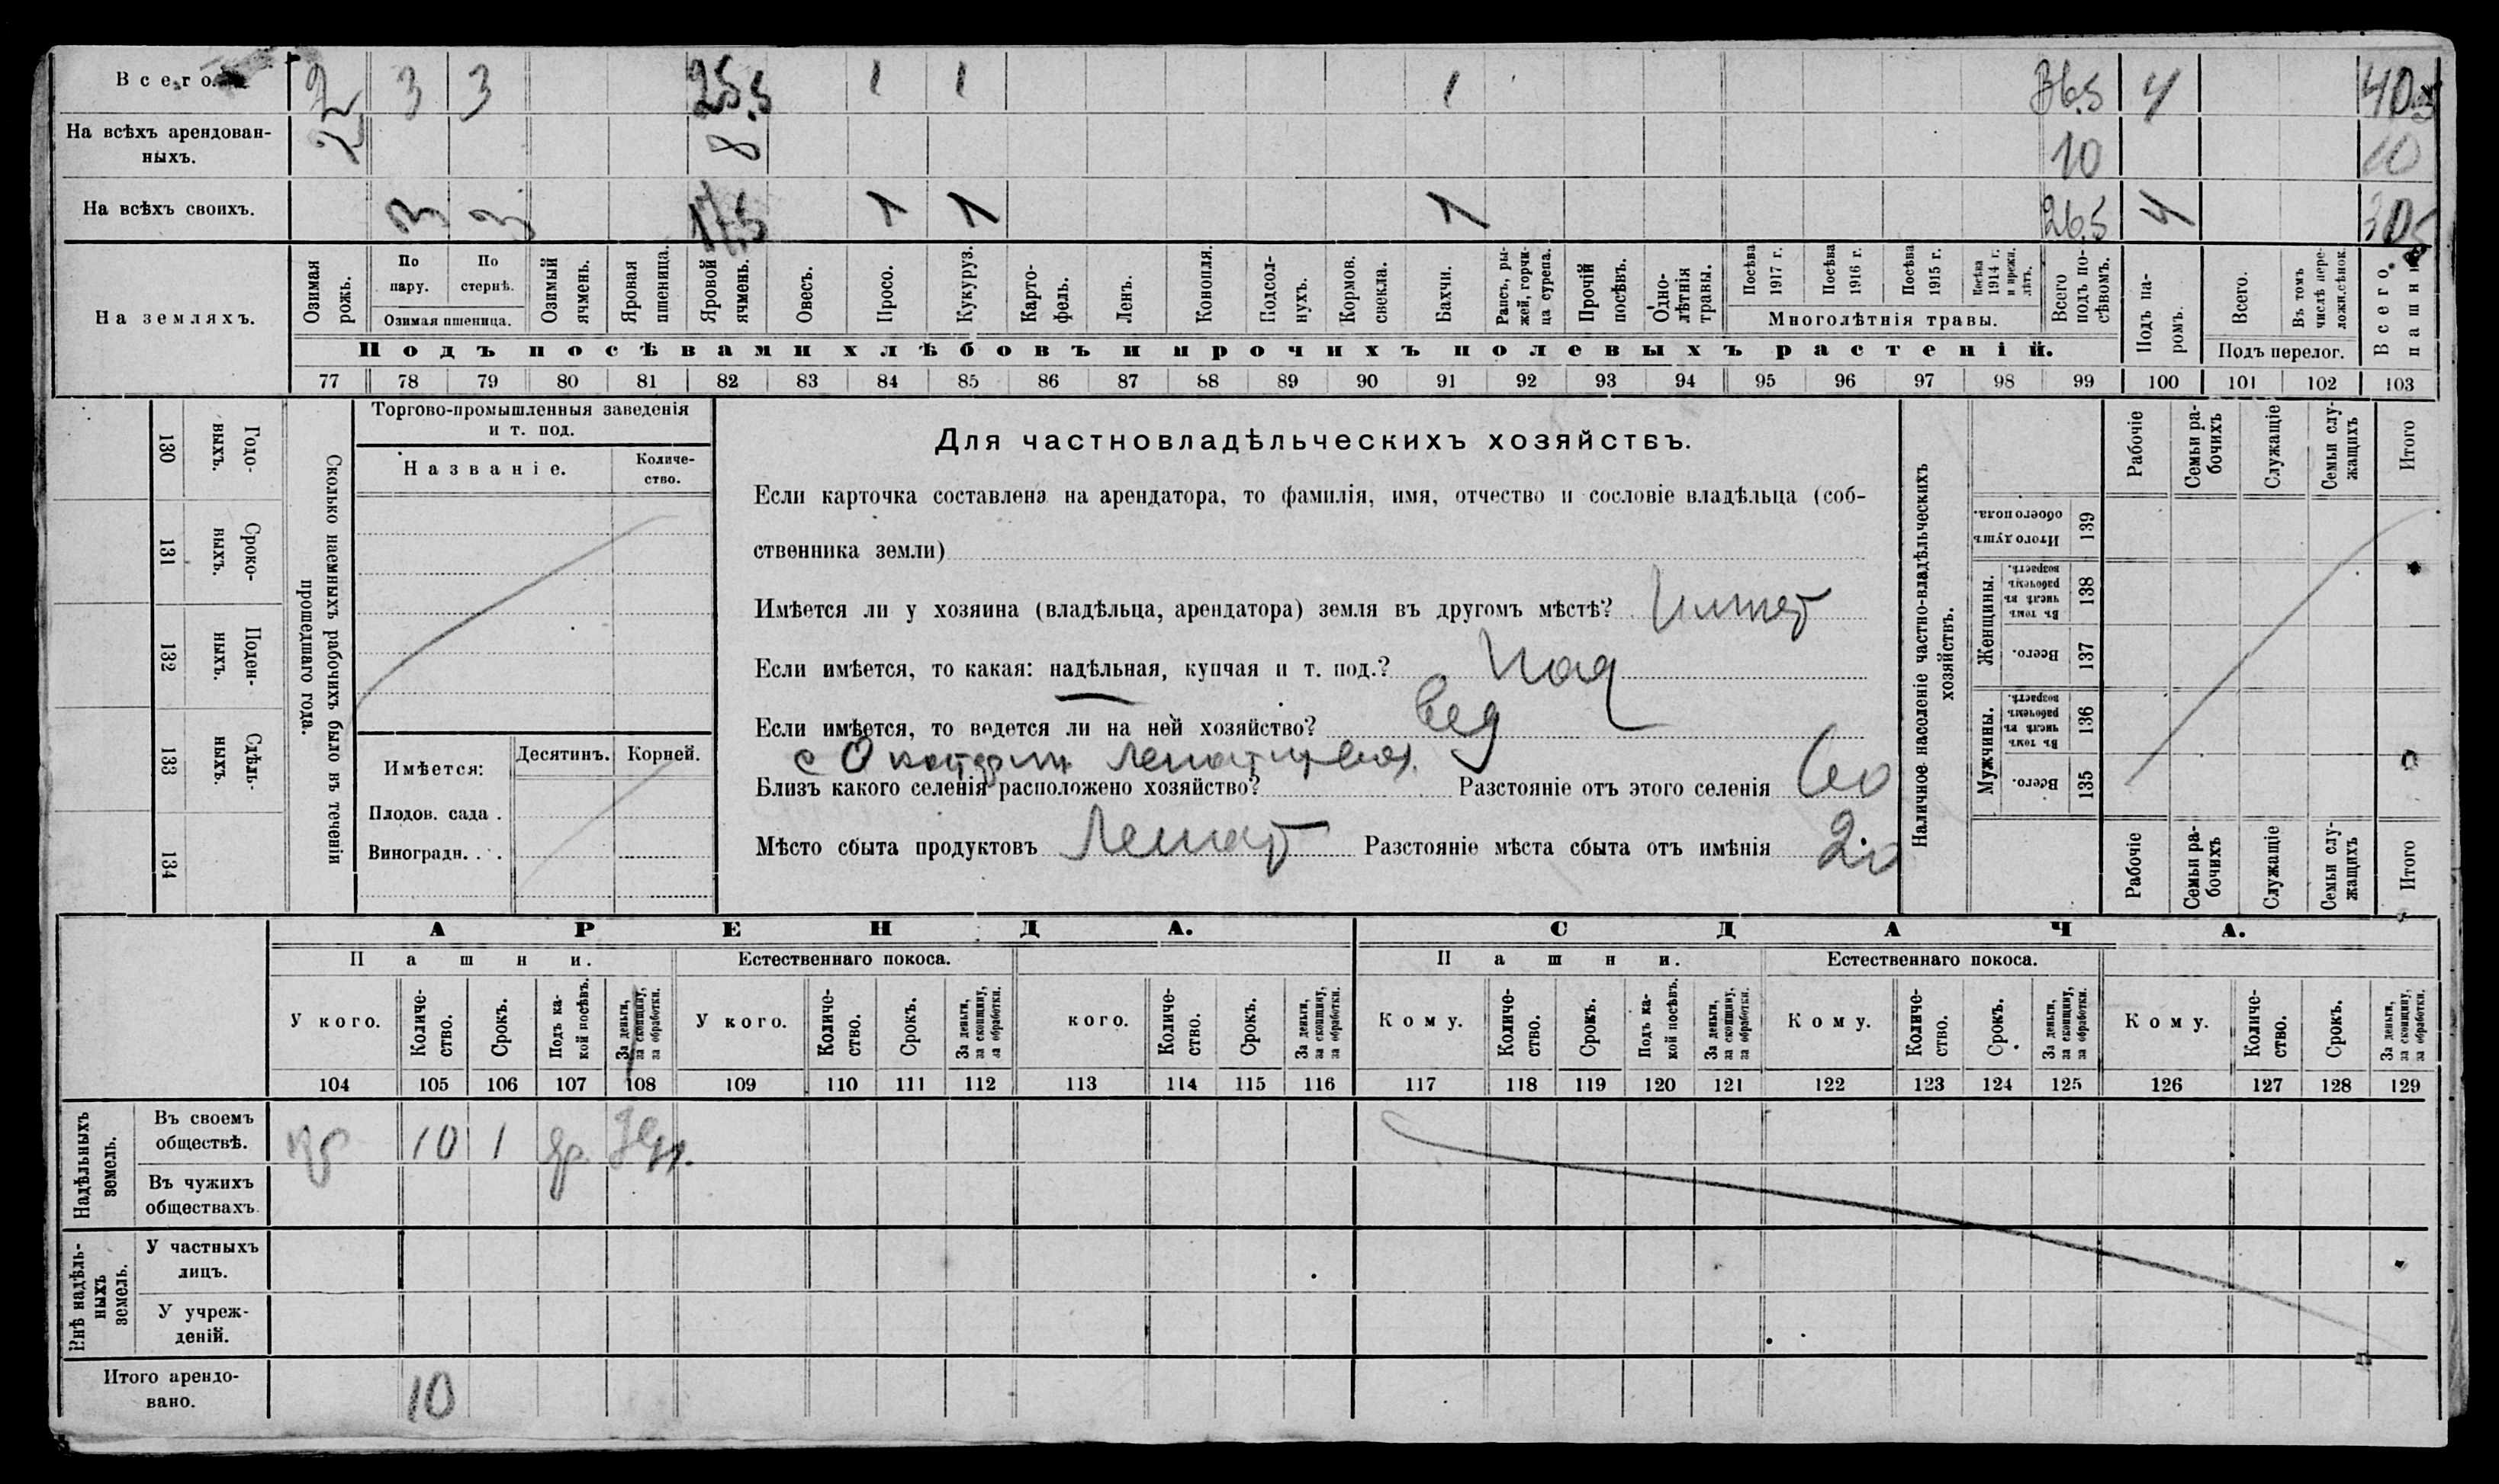 Всего. 2 3 3 25.5 1 1 1 36.5 4 40.5
На всѣхъ арендован-
ныхъ. 2 8 10 10
На всѣхъ своихъ. 3 3 17.5 1 1 1 26.5 4 30.5
На земляхъ.
Озимая
рожь.
По
пару.
По
стернѣ.
Озимая пшеница.
Озимый
ячмень.
Яровая
пшеница.
Яровой
ячмень.
Овесъ.
Просо.
Кукуруз.
Карто-
фель.
Ленъ.
Конопля.
Подсол-
нухъ.
Кормов.
свекла.
Бахчи.
Рапсъ, ры-
жей, горчи-
ца сурепа.
Прочій
посѣвъ.
Одно-
лѣтнія
травы.
Посѣва
1917 г.
Посѣва
1916 г.
Посѣва
1915 г.
Посѣва
1914 г.
и прежн.
лѣтъ.
Многолѣтнія травы.
Всего
подъ по-
сѣвомъ.
Подъ па-
ромъ.
Всего.
Въ томъ
числѣ пере-
ложн.сѣнок.
Подъ перелог.
Всего
пашни
Подъ посѣвами хлѣбовъ и прочихъ полевыхъ растеній.
77 78 79 80 81 82 83 84 85 86 87 88 89 90 91 92 93 94 95 96 97 98 99 100 101 102 103
130
Годо-
выхъ.
131
Сроко-
ныхъ.
132
Поден-
ныхъ.
133
Сдѣль-
ныхъ.
134
Сколько наемныхъ рабочихъ было въ теченіи
прошедшаго года.
Торгово-промышленныя заведенія
и т. под.
Названіе.
Количе-
ство.
Имѣется: Десятинъ. Корней.
Плодов. сада .
Виноградн. . .
Для частновладѣльческихъ хозяйствъ.
Если карточка составлена на арендатора, то фамилія, имя, отчество и сословіе владѣльца (соб-
ственника земли)
Имѣется ли у хозяина (владѣльца, арендатора) земля въ другомъ мѣстѣ?
Если имѣется, то какая: надѣльная, купчая и т. под.? над
Если имѣется, то ведется ли на ней хозяйство? вед
с
Близъ какого селенія расположено хозяйство? Разстояніе отъ этого селенія
Мѣсто сбыта продуктовъ Разстояніе мѣста сбыта отъ имѣнія
Наличное населеніе частно-владѣльческихъ
хозяйствъ.
Рабочіе
Семьи ра-
бочихъ
Служащіе
Семьи слу-
жащихъ
Итого
Итого душъ
обоего пола.
139
Женщины.
Въ томъ
числѣ въ
рабочемъ
возрастѣ.
138
Всего.
137
Мужчины.
Въ томъ
числѣ въ
рабочемъ
возрастѣ.
136
Всего.
135
Рабочіе
Семьи ра-
бочихъ
Служащіе
Семьи слу-
жащихъ
Итого
АРЕНДА. СДАЧА.
Пашни. Естественнаго покоса. Пашни. Естественнаго покоса.
У кого.
Количе-
ство.
Срокъ.
Подъ ка-
кой посѣвъ.
За деньги,
за скопщину,
за обработки.
У кого.
Количе-
ство.
Срокъ.
За деньги,
за скопщину,
за обработки.
кого.
Количе-
ство.
Срокъ.
За деньги,
за скопщину,
за обработки.
Кому.
Количе-
ство.
Срокъ.
Подъ ка-
кой посѣвъ.
За деньги,
за скопщину,
за обработки.
Кому.
Количе-
ство.
Срокъ.
За деньги,
за скопщину,
за обработки.
Кому.
Количе-
ство.
Срокъ.
За деньги,
за скопщину,
за обработки.
104 105 106 107 108 109 110 111 112 113 114 115 116 117 118 119 120 121 122 123 124 125 126 127 128 129
Надѣльныхъ
земель.
Въ своемъ
обществѣ. 10 1
Въ чужихъ
обществахъ.
Внѣ надѣль-
ныхъ
земель.
У частныхъ
лицъ.
У учреж-
деній.
Итого арендо-
вано. 10